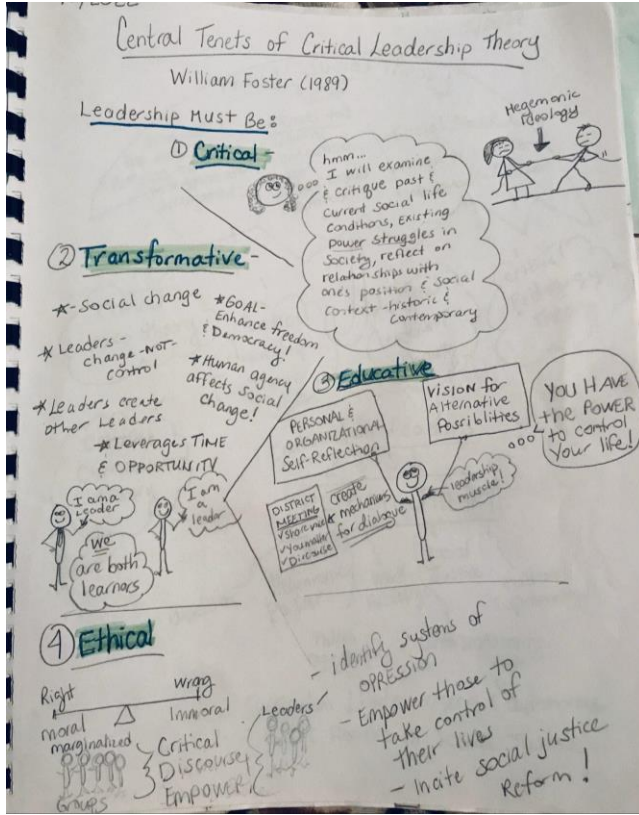 Central Tenets of Critical Leadership Theory
William Foster (1989)
Leadership Must Be:
① Critical -
hmm...
I will examine
& critique past &
current social life
conditions, existing
power struggles in
society, reflect on
relationships with
one's position & social
context - historic &
contemporary
Hegemonic
Ideology
② Transformative -
* - Social change
* Leaders -
change - NOT -
control
* Leaders create
other Leaders
* GOAL -
Enhance freedom
& Democracy!
* Human agency
affects social
change!
* Leverages TIME
& OPPORTUNITY
I am a
Leader
I am
a
leader
We
are both
learners
③ Educative
PERSONAL &
ORGANIZATIONAL
Self-Reflection
VISION for
Alternative
Possiblities
YOU HAVE
the POWER
to control
Your life!
leadership
muscle!
DISTRICT
MEETING
✓ Share voice
✓ You matter
✓ Discourse
* create
mechanisms
for dialogue
④ Ethical
Right
Wrong
moral
Immoral
marginalized
Groups
Critical
Discourse
Empower
Leaders
- identify systems of
OPRESSION
- Empower those to
take control of
their lives
- Incite social justice
Reform!